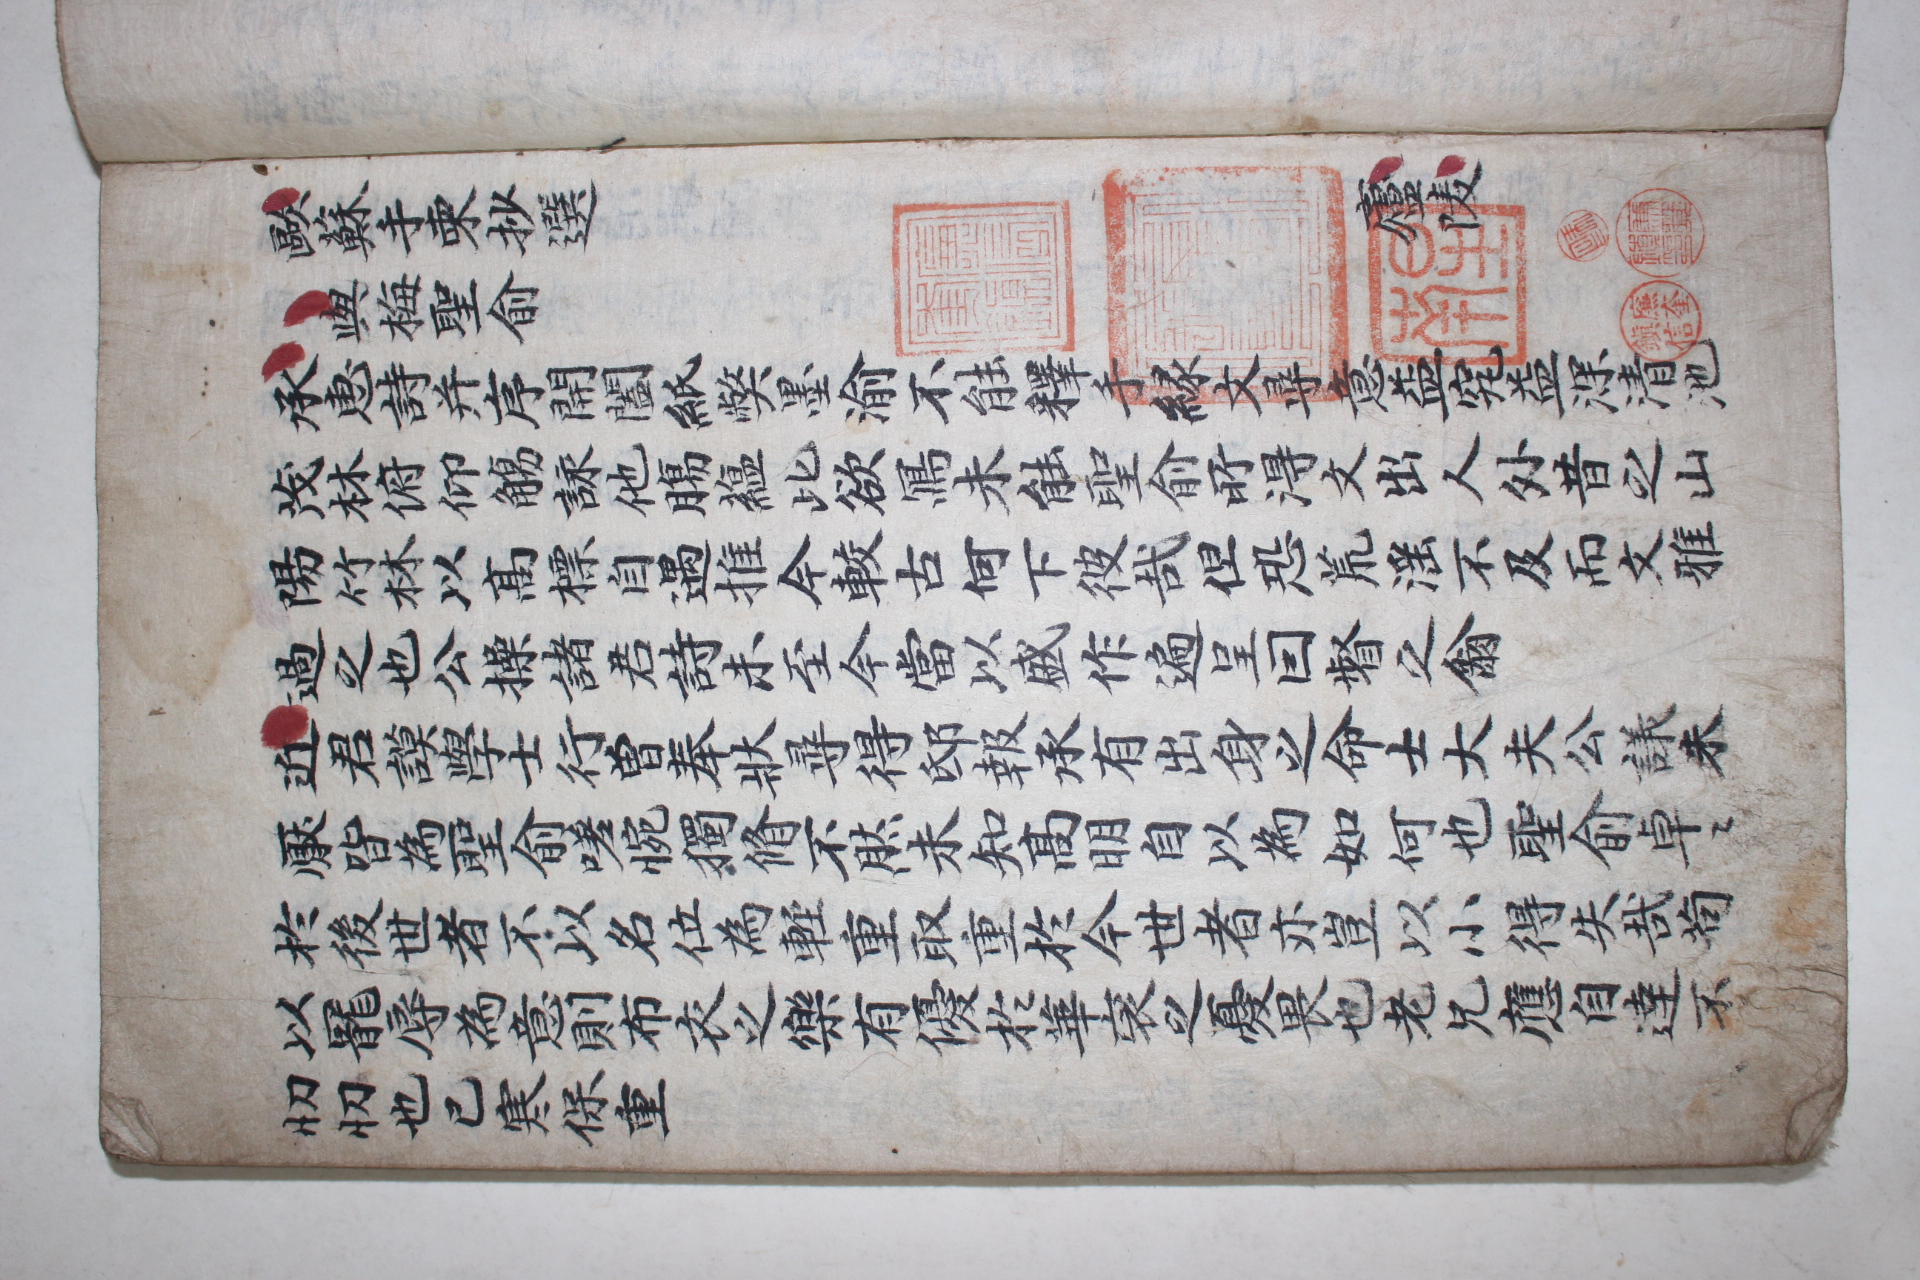 歐蘇手柬抄選 廬陵
與梅聖俞
承惠詩并序開闔紙弊墨渝不能釋手緣文尋意益究益深清池
茂林俯仰觴詠他腸蘊此欲寫未能聖俞所得文出人外昔之山
陽竹林以高標自遇推今較古何下彼哉但恐荒淫不及而文雅
過之也公操諸君詩未至今當以盛作遍呈回督之爾
近君謨學士行曾奉狀尋得邸報承有出身之命士大夫公議未
厭皆為聖俞嗟惋獨脩不然未知高明自以為如何也聖俞卓〻
於後世者不以名位為輕重取重於今世者亦豈以小得失哉苟
以寵辱為意則布衣之樂有優於華袞之憂畏也老兄應自達不
忉忉也已寒保重